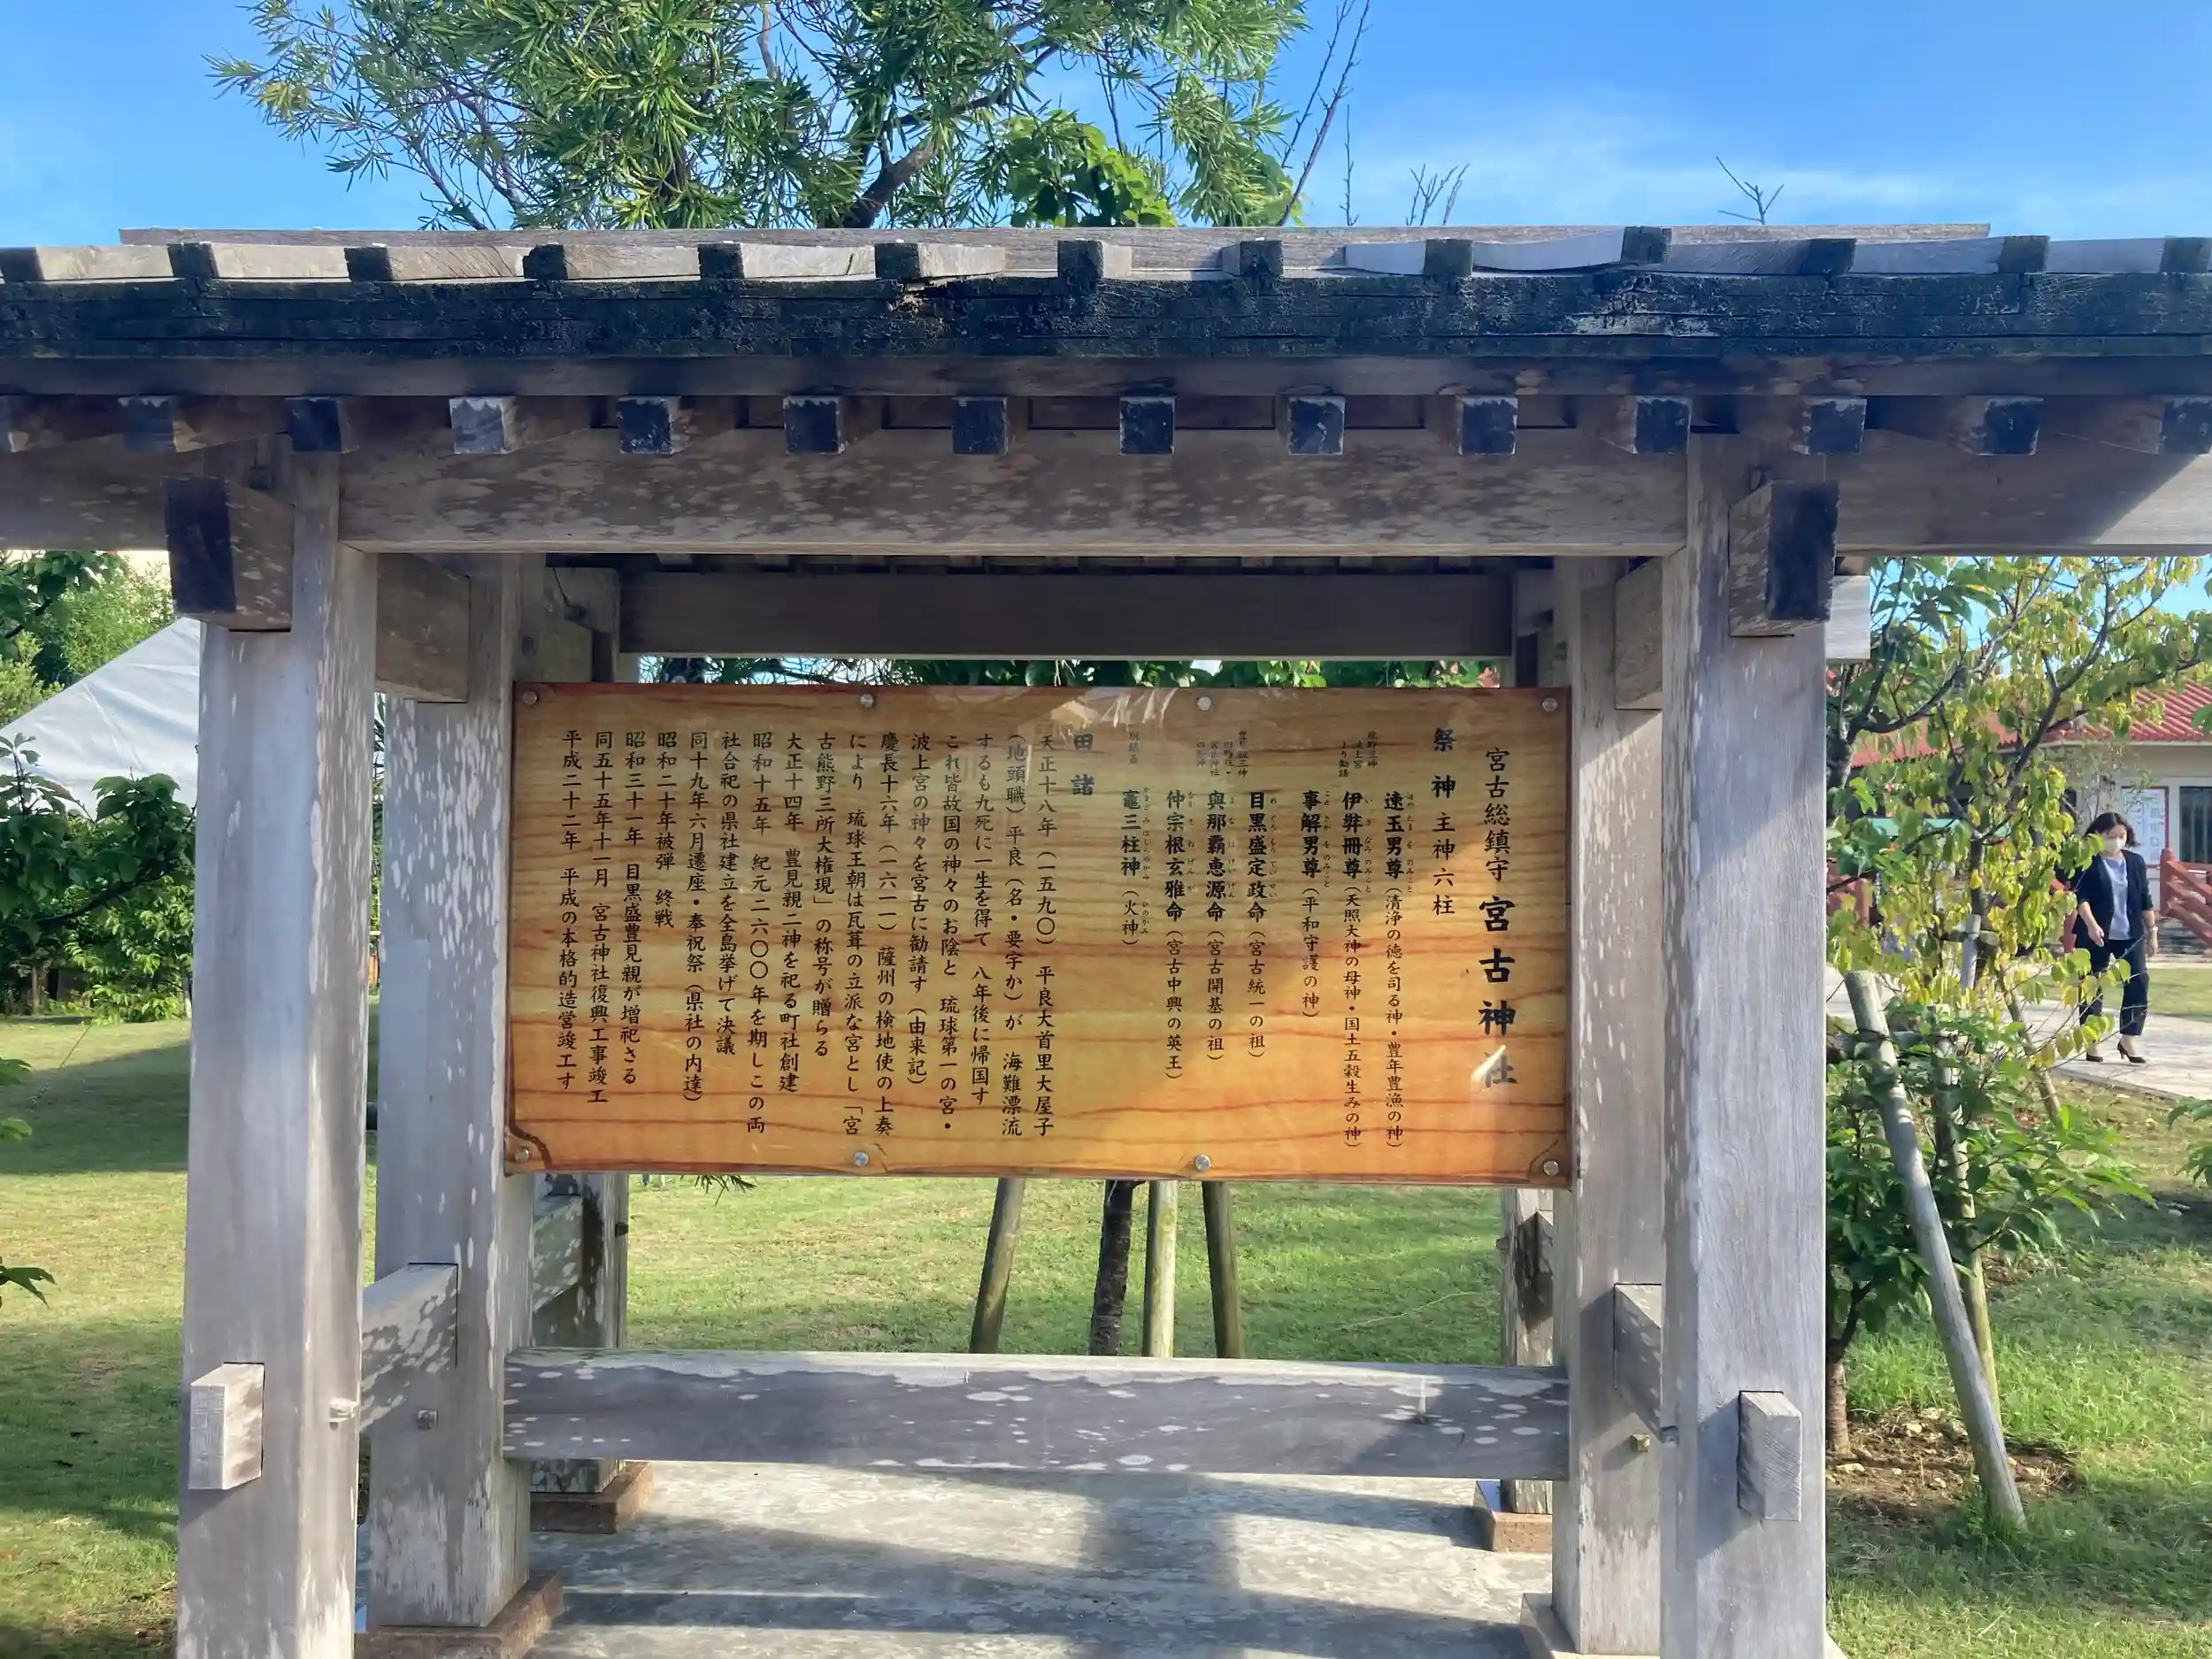 宮古総鎮守 宮古神社
祭神 主神六柱
熊野三神
波上宮
より勧請
速玉男尊（清浄の徳を司る神・豊年豊漁の神）
伊弉冊尊（天照大神の母神・国土五穀生みの神）
事解男尊（平和守護の神）
豊見親三神
宮古神社
の祀神
目黒盛定政命（宮古統一の祖）
與那覇恵源命（宮古開基の祖）
仲宗根玄雅命（宮古中興の英王）
竈三柱神（火神）
由諸
天正十八年（一五九〇） 平良大首里大屋子
（地頭職）平良（名・要字か）が 海難漂流
するも九死に一生を得て 八年後に帰国す
これ皆故国の神々のお陰と 琉球第一の宮・
波上宮の神々を宮古に勧請す（由来記）
慶長十六年（一六一一） 薩州の検地使の上奏
により 琉球王朝は瓦葺の立派な宮とし「宮
古熊野三所大権現」の称号が贈らる
大正十四年 豊見親二神を祀る町社創建
昭和十五年 紀元二六〇〇年を期しこの両
社合祀の県社建立を全島挙げて決議
同十九年六月遷座・奉祝祭（県社の内達）
昭和二十年被弾 終戦
昭和三十一年 目黒盛豊見親が増祀さる
同五十五年十一月 宮古神社復興工事竣工
平成二十二年 平成の本格的造営竣工す